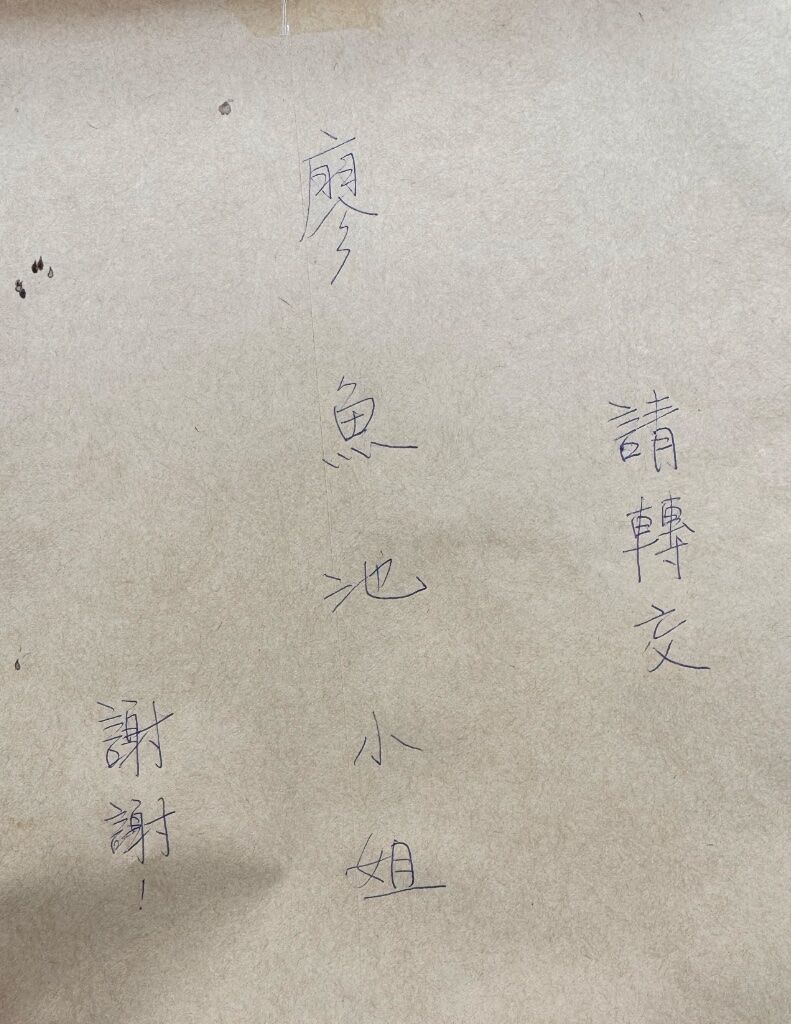 請轉交
廖魚池小姐
謝謝！